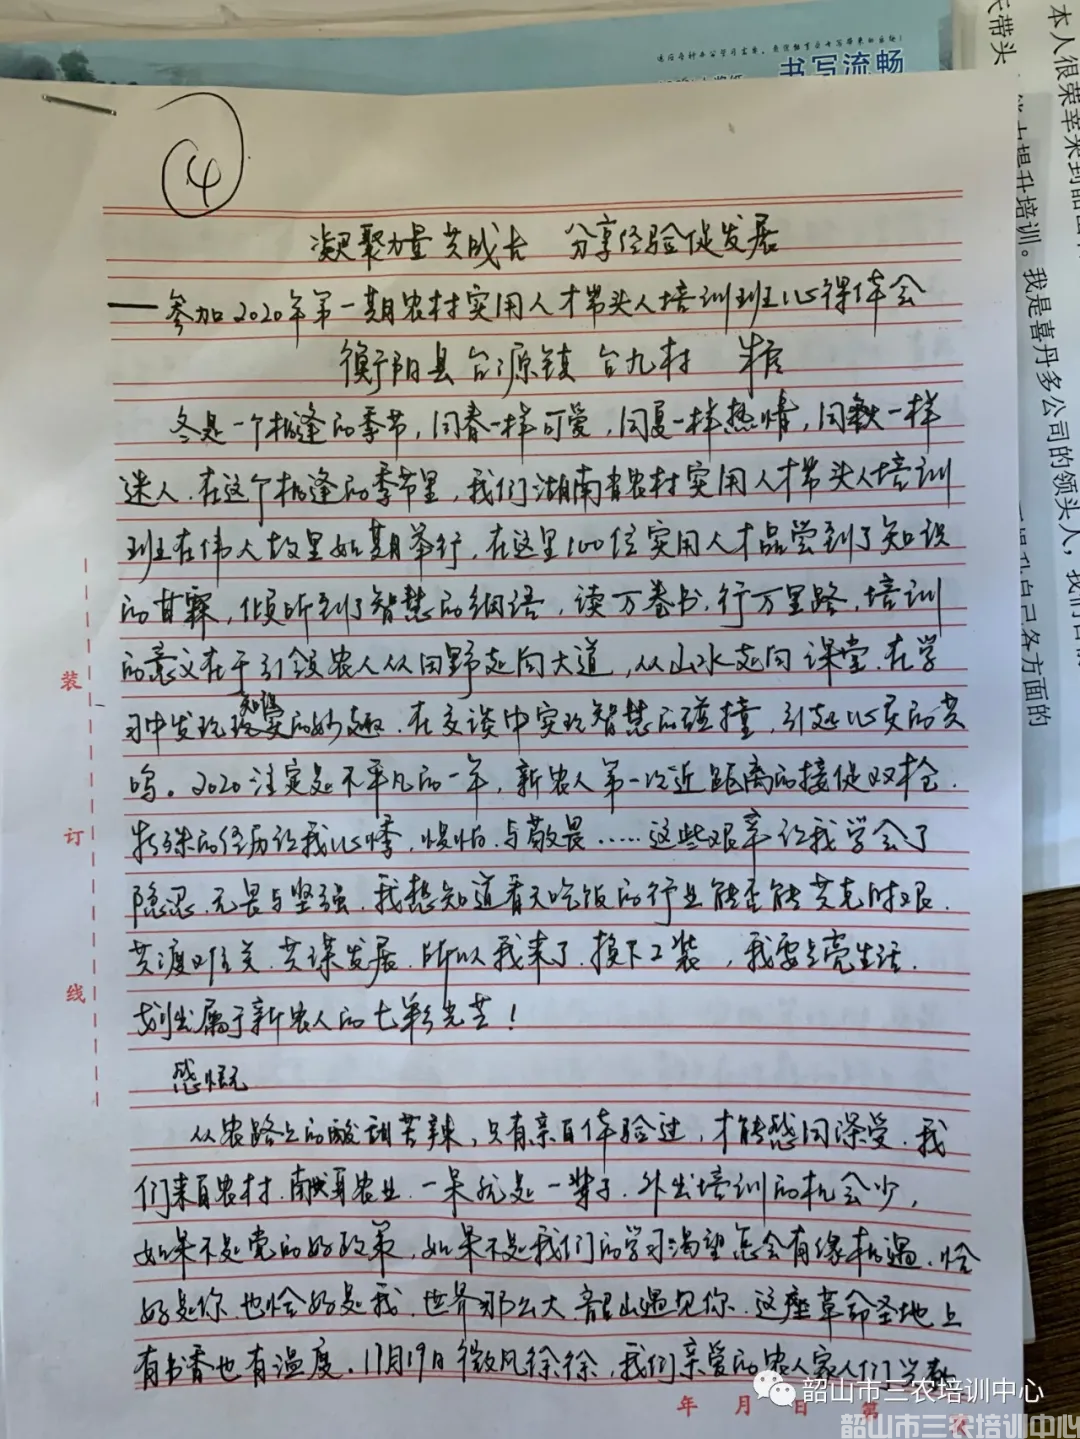 书写流畅
本人很荣幸来到韶山
能力提升培训。我是喜丹多公司的领头人，我们
自己各方面的
14
凝聚力量共成长 分享经验促发展
——参加2020年第一期农村实用人才带头人培训班心得体会
衡阳县台源镇台九村
冬是一个相逢的季节，同春一样可爱，同夏一样热情，同秋一样
迷人，在这个相逢的季节里，我们湖南省农村实用人才带头人培训
班在伟人故里如期举行，在这里100位实用人才品尝到了知识
的甘霖，倾听到了智慧的细语，读万卷书，行万里路，培训
的意义在于引领农人从田野走向大道，从山水走向课堂，在学
习中发现知识的妙趣，在交谈中实现智慧的碰撞，引起心灵的共
鸣。2020注定是不平凡的一年，新农人第一次近距离的接促双抢，
特殊的经历让我心悸，惧怕，与敬畏……这些艰辛让我学会了
隐忍，无畏与坚强，我想知道看天吃饭的行业能否能共克时艰，
共渡难关，共谋发展，所以我来了，换下工装，我要点亮生活，
划出属于新农人的七彩光芒！
感慨
从农路上的酸甜苦辣，只有亲自体验过，才能感同深受，我
们来自农村，献身农业，一呆就是一辈子，外出培训的机会少，
如果不是党的好政策，如果不是我们的学习渴望怎会有缘相遇，恰
好是你，也恰好是我，世界那么大，韶山遇见你，这座革命圣地上
有书香也有温度，11月19日微风徐徐，我们亲爱的农人家人们
装
订
线
年 月 日 第
韶山市三农培训中心
韶山市三农培训中心